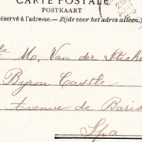 CARTE POSTALE
POSTKAART
réservé à l'adresse. — Zijde voor het adres alleen.
M. Van der Stichel
Byron Castle
Avenue de Paris
Spa